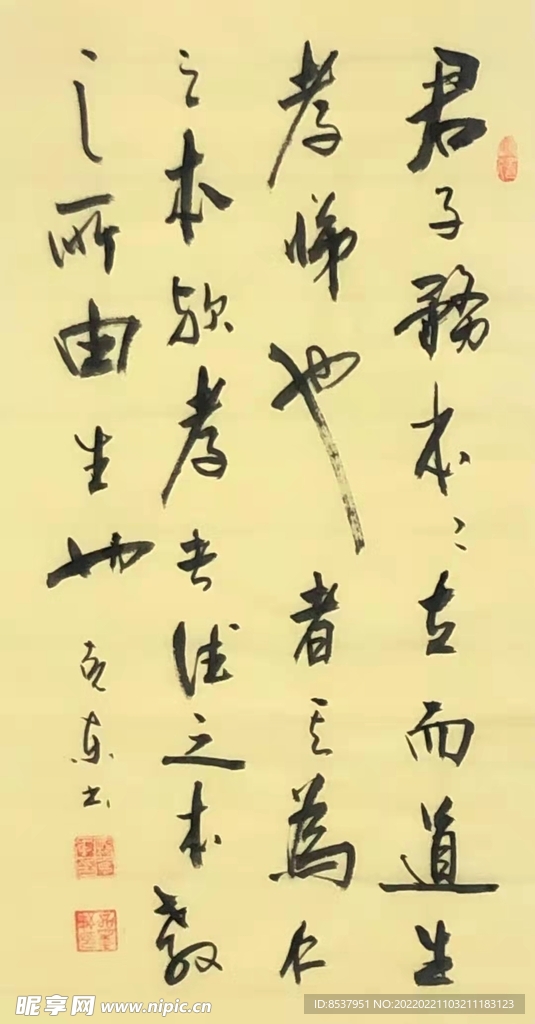 君子務本〻立而道生
孝悌也者其為仁
之本歟孝者德之本教
之所由生也
克東书
昵享网 www.nipic.cn
ID:8537951 NO:20220221103211183123